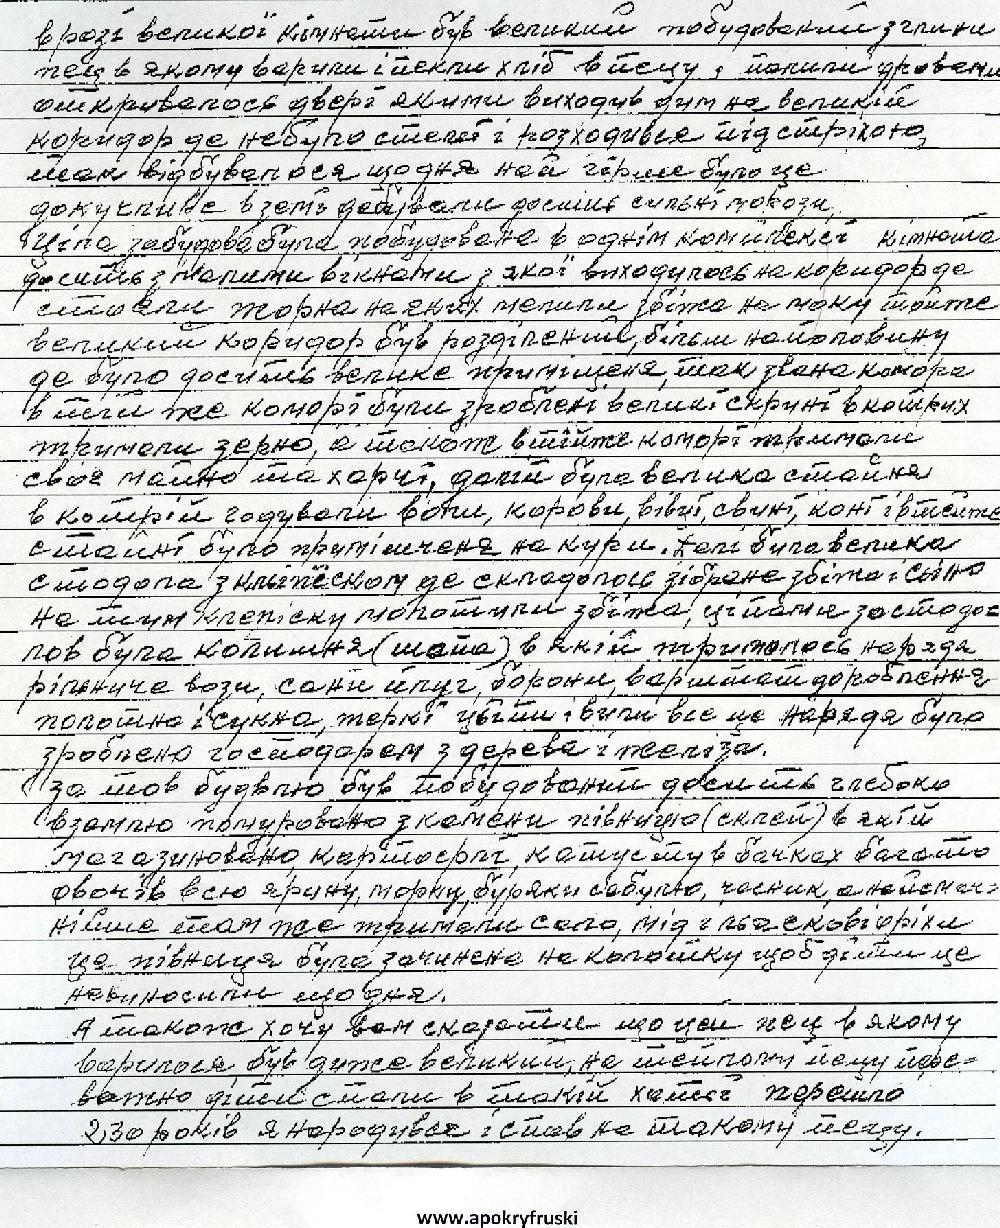 в розі великої кімнати був великий побудований з глини
пец в якому варили і пекли хліб в пецу, палили дровами
откривалось двері якими виходив дим на великий
коридор де небуло стелі і розходився під стріхою,
так відбувалося щодня най гірше було це
докучливе в земі де бували досить сильні морози,
Ціла забудова була побудована в однім комплексі кімната
досить з малими вікнами з якої виходилось на коридор де
стояли жорна на яких мелили збіжа на моку тойже
великий коридор був розділений, більш наполовину
де було досить велике приміщеня, так звана комора
в тій же коморі були зроблені великі скрині в котрих
тримали зерно, а також в тійже коморі тримали
своє майно та харчі, далій була велика стайня
в котрій годували воли, корови, вівці, свині, коні і в тейже
стайні було приміщеня на кури. Далі була велика
стодола з кліпіском де складалось зібране збіжа і сіно
на тум кпепіску молотили збіжа, ці пами за стодо=
лов була колишня (шопа) в якій трималось наряда
рільниче вози, сани плуг, борони, варштат до роблення
полотна і сукна, теркі ціпи і вили все це наряда було
зроблено господарем з дерева і желіза.
за тов будвлю був побудований досить глебоко
в землю помуровано з камени півницю (склеп) в якій
магазиновано картофлі, капусту в бачках багато
овочів всю ярину, моркву, буряки собулю, часник, а найсмач=
нійше там же тримали сало, мід і лєсковіоріхи
ця півниця була зачинена на колотку щоб діти це
невиносили щодня.
А також хочу вам сказати що цей пец в якому
варилося, був дуже великий, на тейтому пецу пере=
важно діти спали в такій хаті перейшло
230 років я народився і спав на такому пецу.
www.apokryfruski